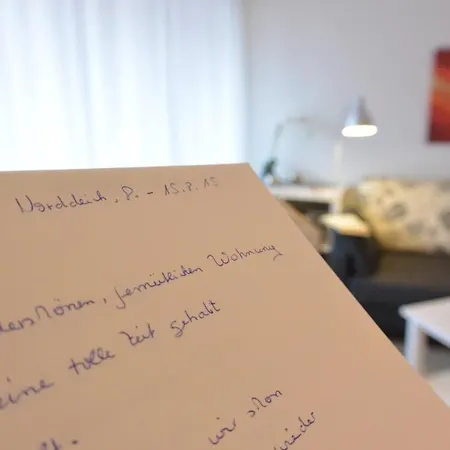 Norddeich, 8. - 15.8.15
schönen, gemütlichen Wohnung
eine tolle Zeit gehabt
wir schon
wieder